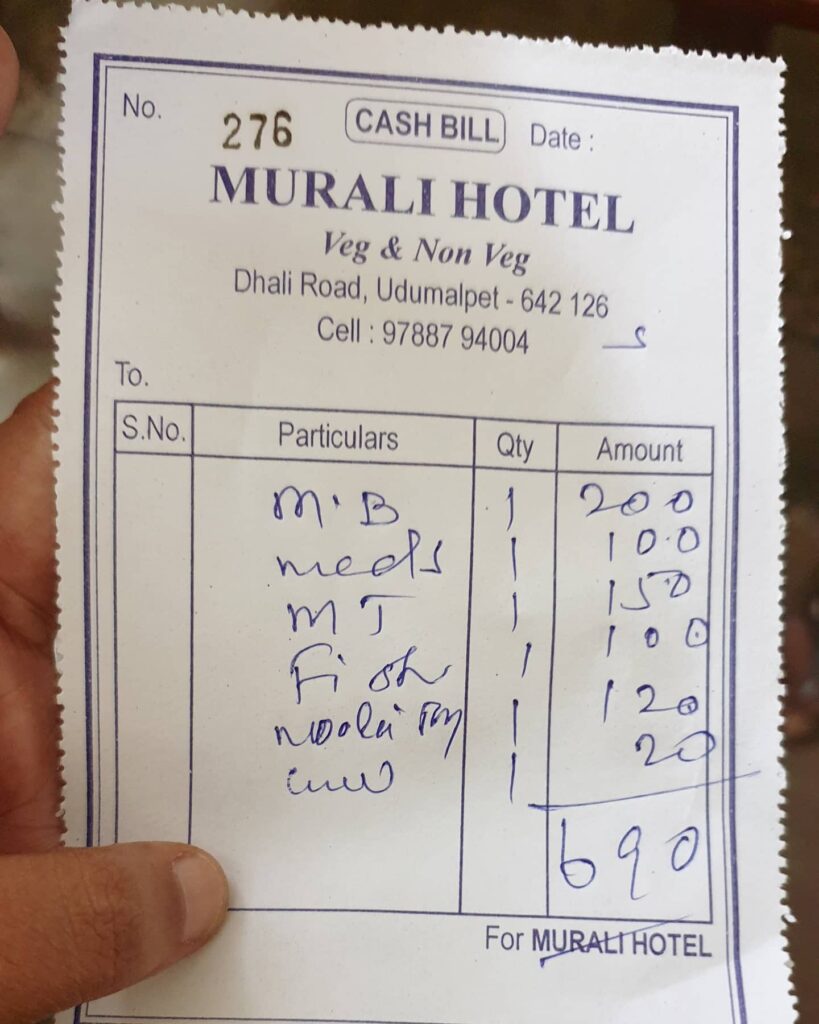 No. 276 CASH BILL Date :
MURALI HOTEL
Veg & Non Veg
Dhali Road, Udumalpet - 642 126
Cell : 97887 94004
To.
S.No. Particulars Qty Amount
M.B 1 200
meals 1 100
M T 1 150
Fish 1 100
1 120
1 20
690
For MURALI HOTEL